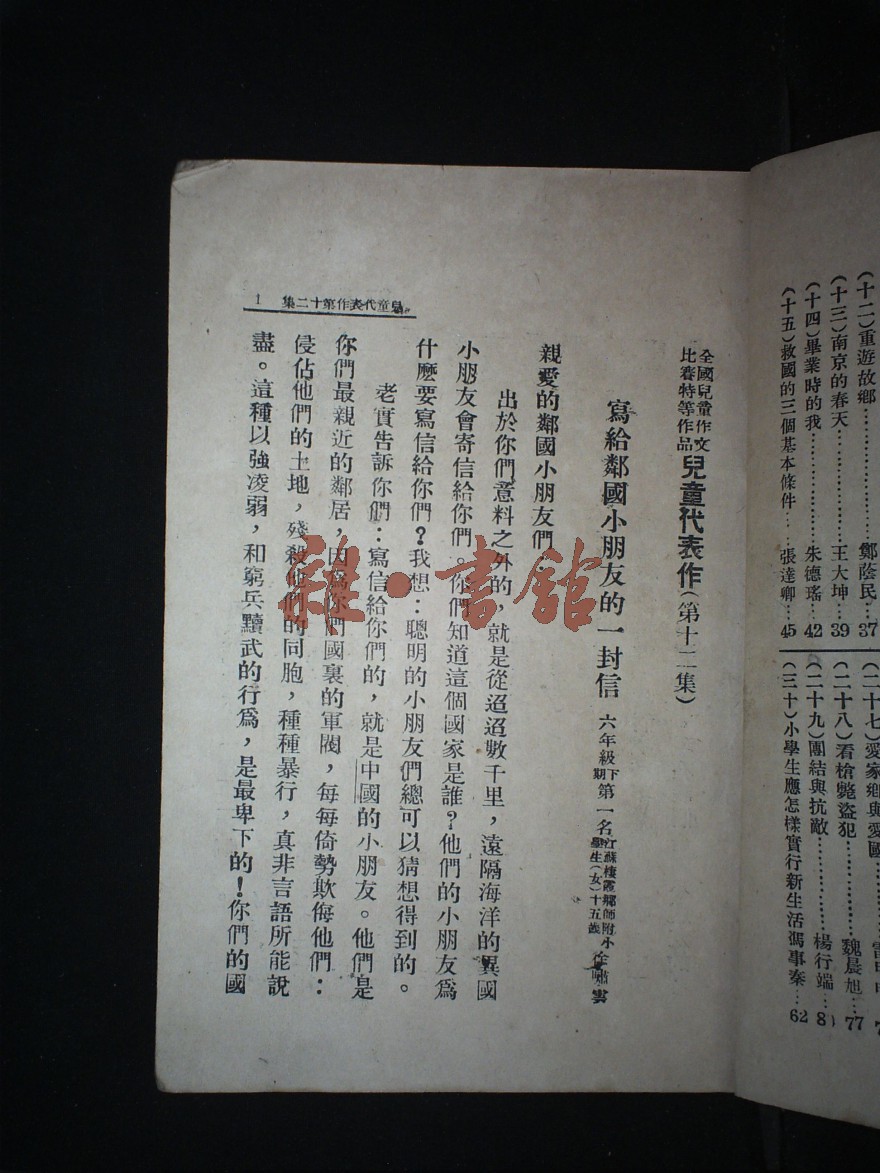 (十二)重遊故鄉……鄭蔭民…37
(十三)南京的春天……王大坤…39
(十四)畢業時的我……朱德瑤…42
(十五)救國的三個基本條件……張達卿…45
(二十七)愛家鄉與愛國
(二十八)看槍斃盜犯……魏晨旭…77
(二十九)團結與抗敵……楊行端…81
(三十)小學生應怎樣實行新生活馮事秦…62
全國兒童作文
比賽特等作品
兒童代表作(第十二集)
寫給鄰國小朋友的一封信 六年級下期第一名 江蘇棲霞鄉師附小學生(女)十五歲 徐嘯雲
親愛的鄰國小朋友們:
出於你們意料之外的,就是從迢迢數千里,遠隔海洋的異國
小朋友會寄信給你們。你們知道這個國家是誰?他們的小朋友爲
什麼要寫信給你們?我想:聰明的小朋友們總可以猜想得到的。
老實告訴你們:寫信給你們的,就是中國的小朋友。他們是
你們最親近的鄰居,因爲你們國裏的軍閥,每每倚勢欺侮他們:
侵佔他們的土地,殘殺他們的同胞,種種暴行,真非言語所能說
盡。這種以強凌弱,和窮兵黷武的行爲,是最卑下的!你們的國
兒童代表作第十二集 1
雜·書館